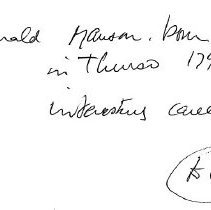 nald Manson. born
in Thurso 179
interesting caree